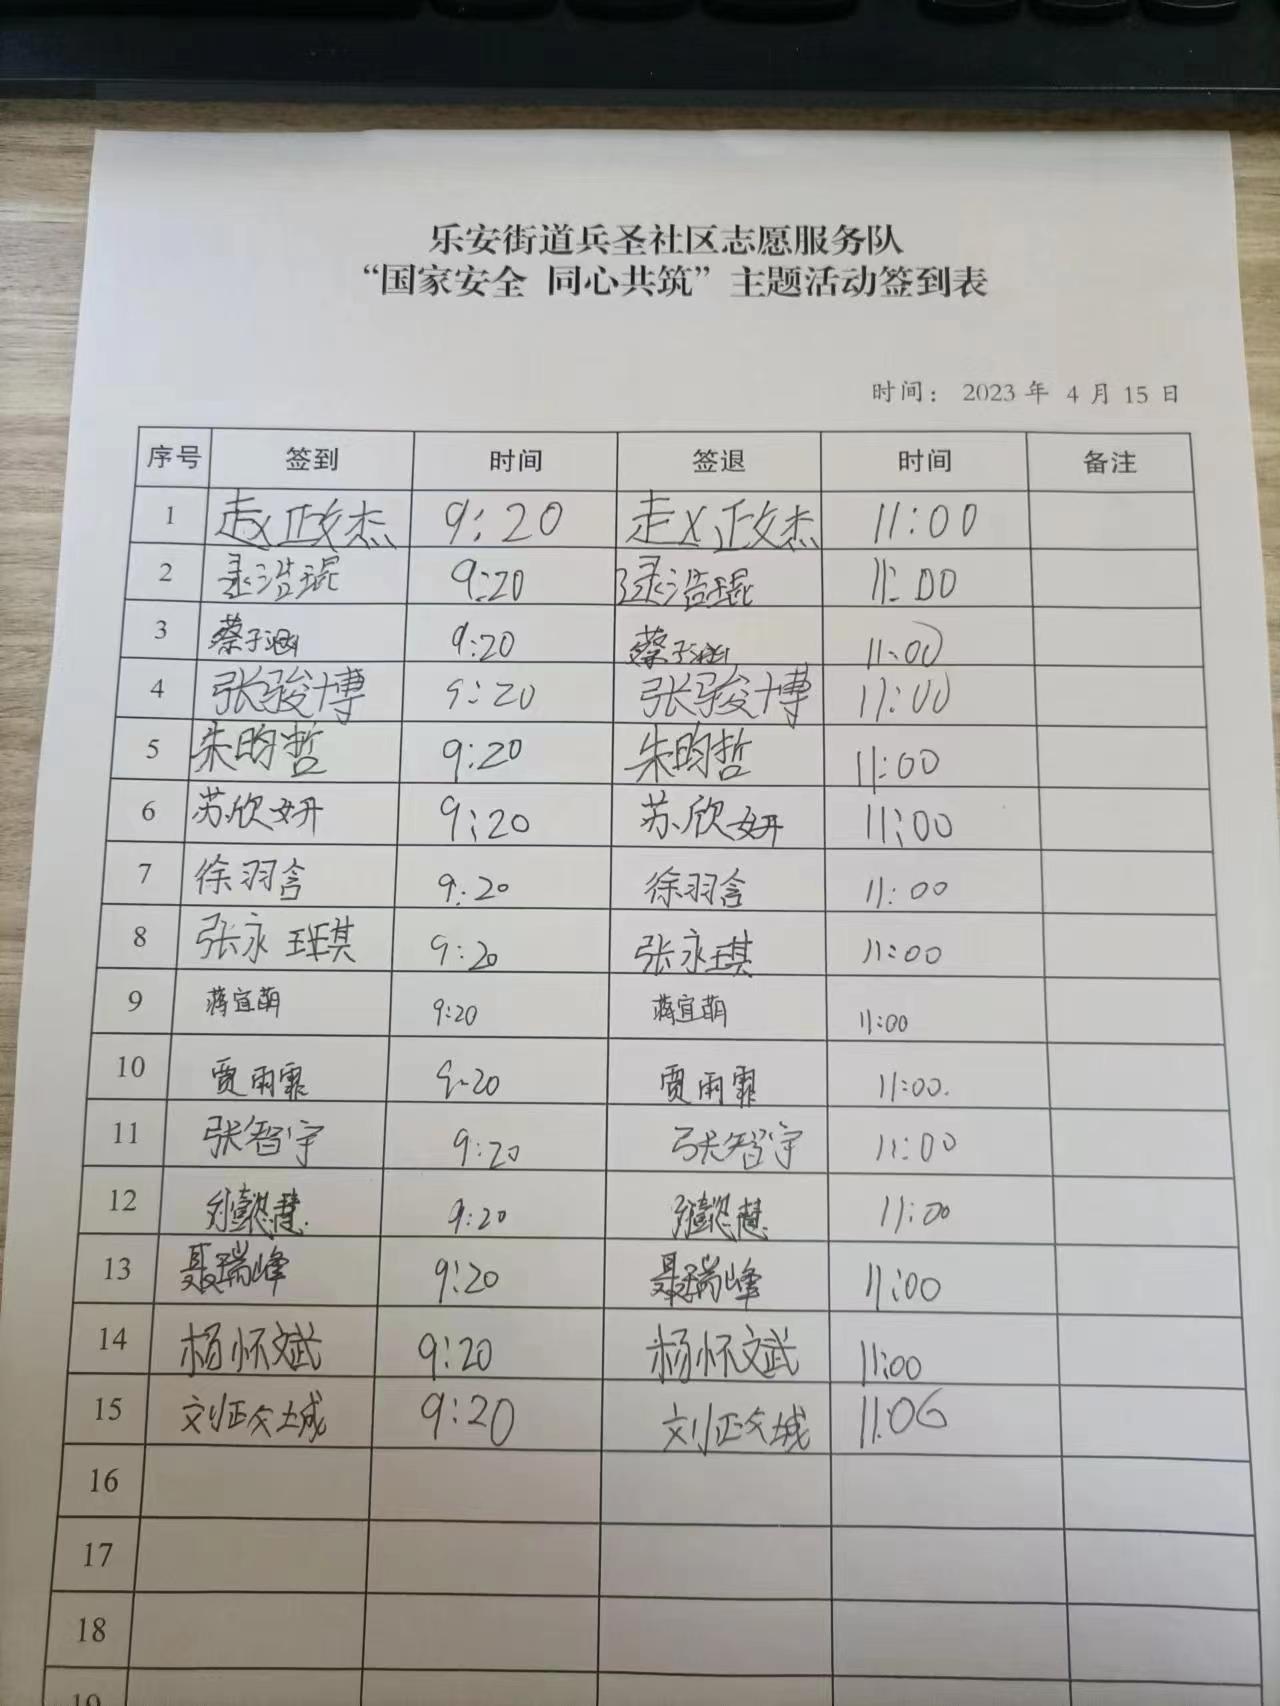 乐安街道兵圣社区志愿服务队
“国家安全 同心共筑”主题活动签到表
时间： 2023 年 4 月 15 日
序号 签到 时间 签退 时间 备注
1 赵政杰 9:20 赵政杰 11:00
2 浩琨 9:20 浩琨 11:00
3 蔡子涵 9:20 蔡子涵 11:00
4 张骏博 9:20 张骏博 11:00
5 朱昀哲 9:20 朱昀哲 11:00
6 苏欣妍 9:20 苏欣妍 11:00
7 徐羽含 9:20 徐羽含 11:00
8 张永琪 9:20 张永琪 11:00
9 蒋宜萌 9:20 蒋宜萌 11:00
10 贾雨霏 9:20 贾雨霏 11:00.
11 张智宇 9:20 张智宇 11:00
12 9:20 11:00
13 聂瑞峰 9:20 聂瑞峰 11:00
14 杨怀斌 9:20 杨怀斌 11:00
15 刘政城 9:20 刘政城 11:00
16
17
18
19